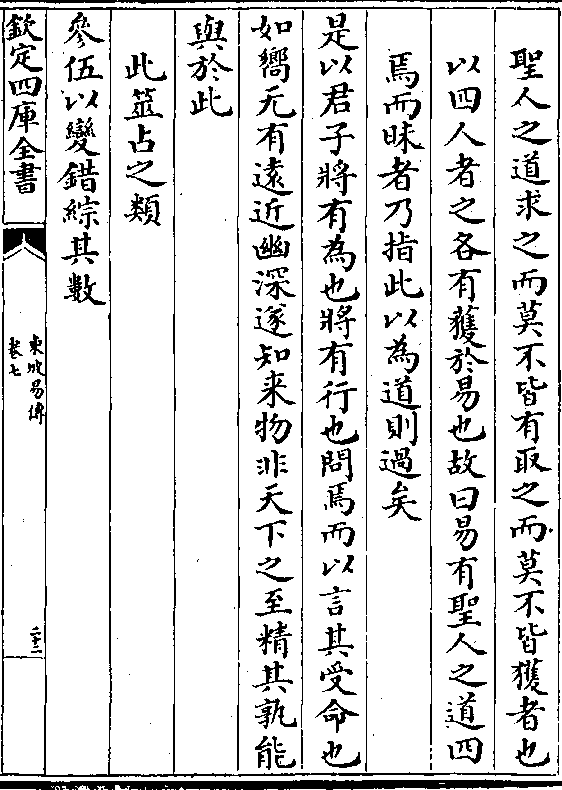 聖人之道求之而莫不皆有取之而莫不皆獲者也
以四人者之各有獲於易也故曰易有聖人之道四
焉而昧者乃指此以為道則過矣
是以君子將有為也將有行也問焉而以言其受命也
如嚮无有遠近幽深遂知来物非天下之至精其孰能
與於此
此筮占之類
參伍以變錯綜其數
欽定四庫全書
東坡易傳
卷七
二十二